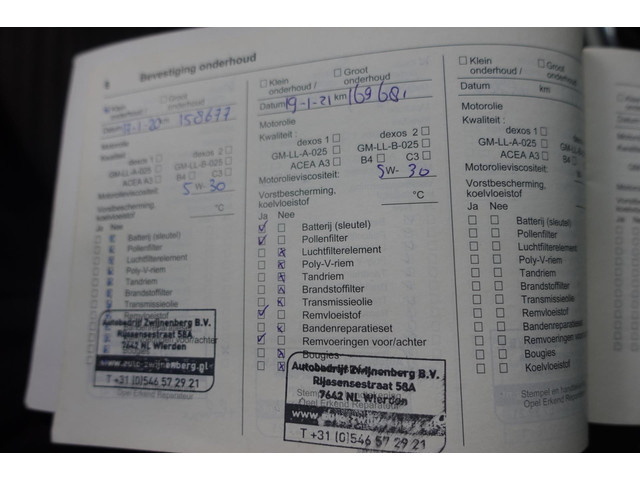 8 Bevestiging onderhoud
Klein onderhoud /
Datum -1-20 km 158677
Motorolie
Kwaliteit
dexos 1 dexos 2
GM-LL-A-025 GM-LL-B-025
ACEA A3 B4 C3
Motorolieviscositeit:
5W-30
Vorstbescherming,
koelvloeistof °C
Ja Nee
Batterij (sleutel)
Pollenfilter
Luchtfilterelement
Poly-V-riem
Tandriem
Brandstoffilter
Transmissieolie
Remvloeistof
Autobedrijf Zwijnenberg B.V.
Rijssensestraat 58A
7642 NL Wierden
www.auto-zwijnenberg.nl
T +31 (0)546 57 29 21
Opel Erkend Reparateur
Klein onderhoud / Groot onderhoud
Datum 19-1-21 km 16968
Motorolie
Kwaliteit :
dexos 1 dexos 2
GM-LL-A-025 GM-LL-B-025
ACEA A3 B4 C3
Motorolieviscositeit: 5W-30
Vorstbescherming,
koelvloeistof °C
Ja Nee
Batterij (sleutel)
Pollenfilter
Luchtfilterelement
Poly-V-riem
Tandriem
Brandstoffilter
Transmissieolie
Remvloeistof
Bandenreparatieset
Remvoeringen voor/achter
Bougies
Autobedrijf Zwijnenberg B.V.
Rijssensestraat 58A
7642 NL Wierden
T +31 (0)546 57 29 21
Klein onderhoud / Groot onderhoud
Datum km
Motorolie
Kwaliteit :
dexos 1
GM-LL-A-025
ACEA A3
Motorolieviscositeit:
Vorstbescherming,
koelvloeistof
Ja Nee
Batterij (sleutel)
Pollenfilter
Luchtfilterelement
Poly-V-riem
Tandriem
Brandstoffilter
Transmissieolie
Remvloeistof
Bandenreparatieset
Remvoeringen
Bougies
Koelvloeistof
Stempel en
Opel Erkend